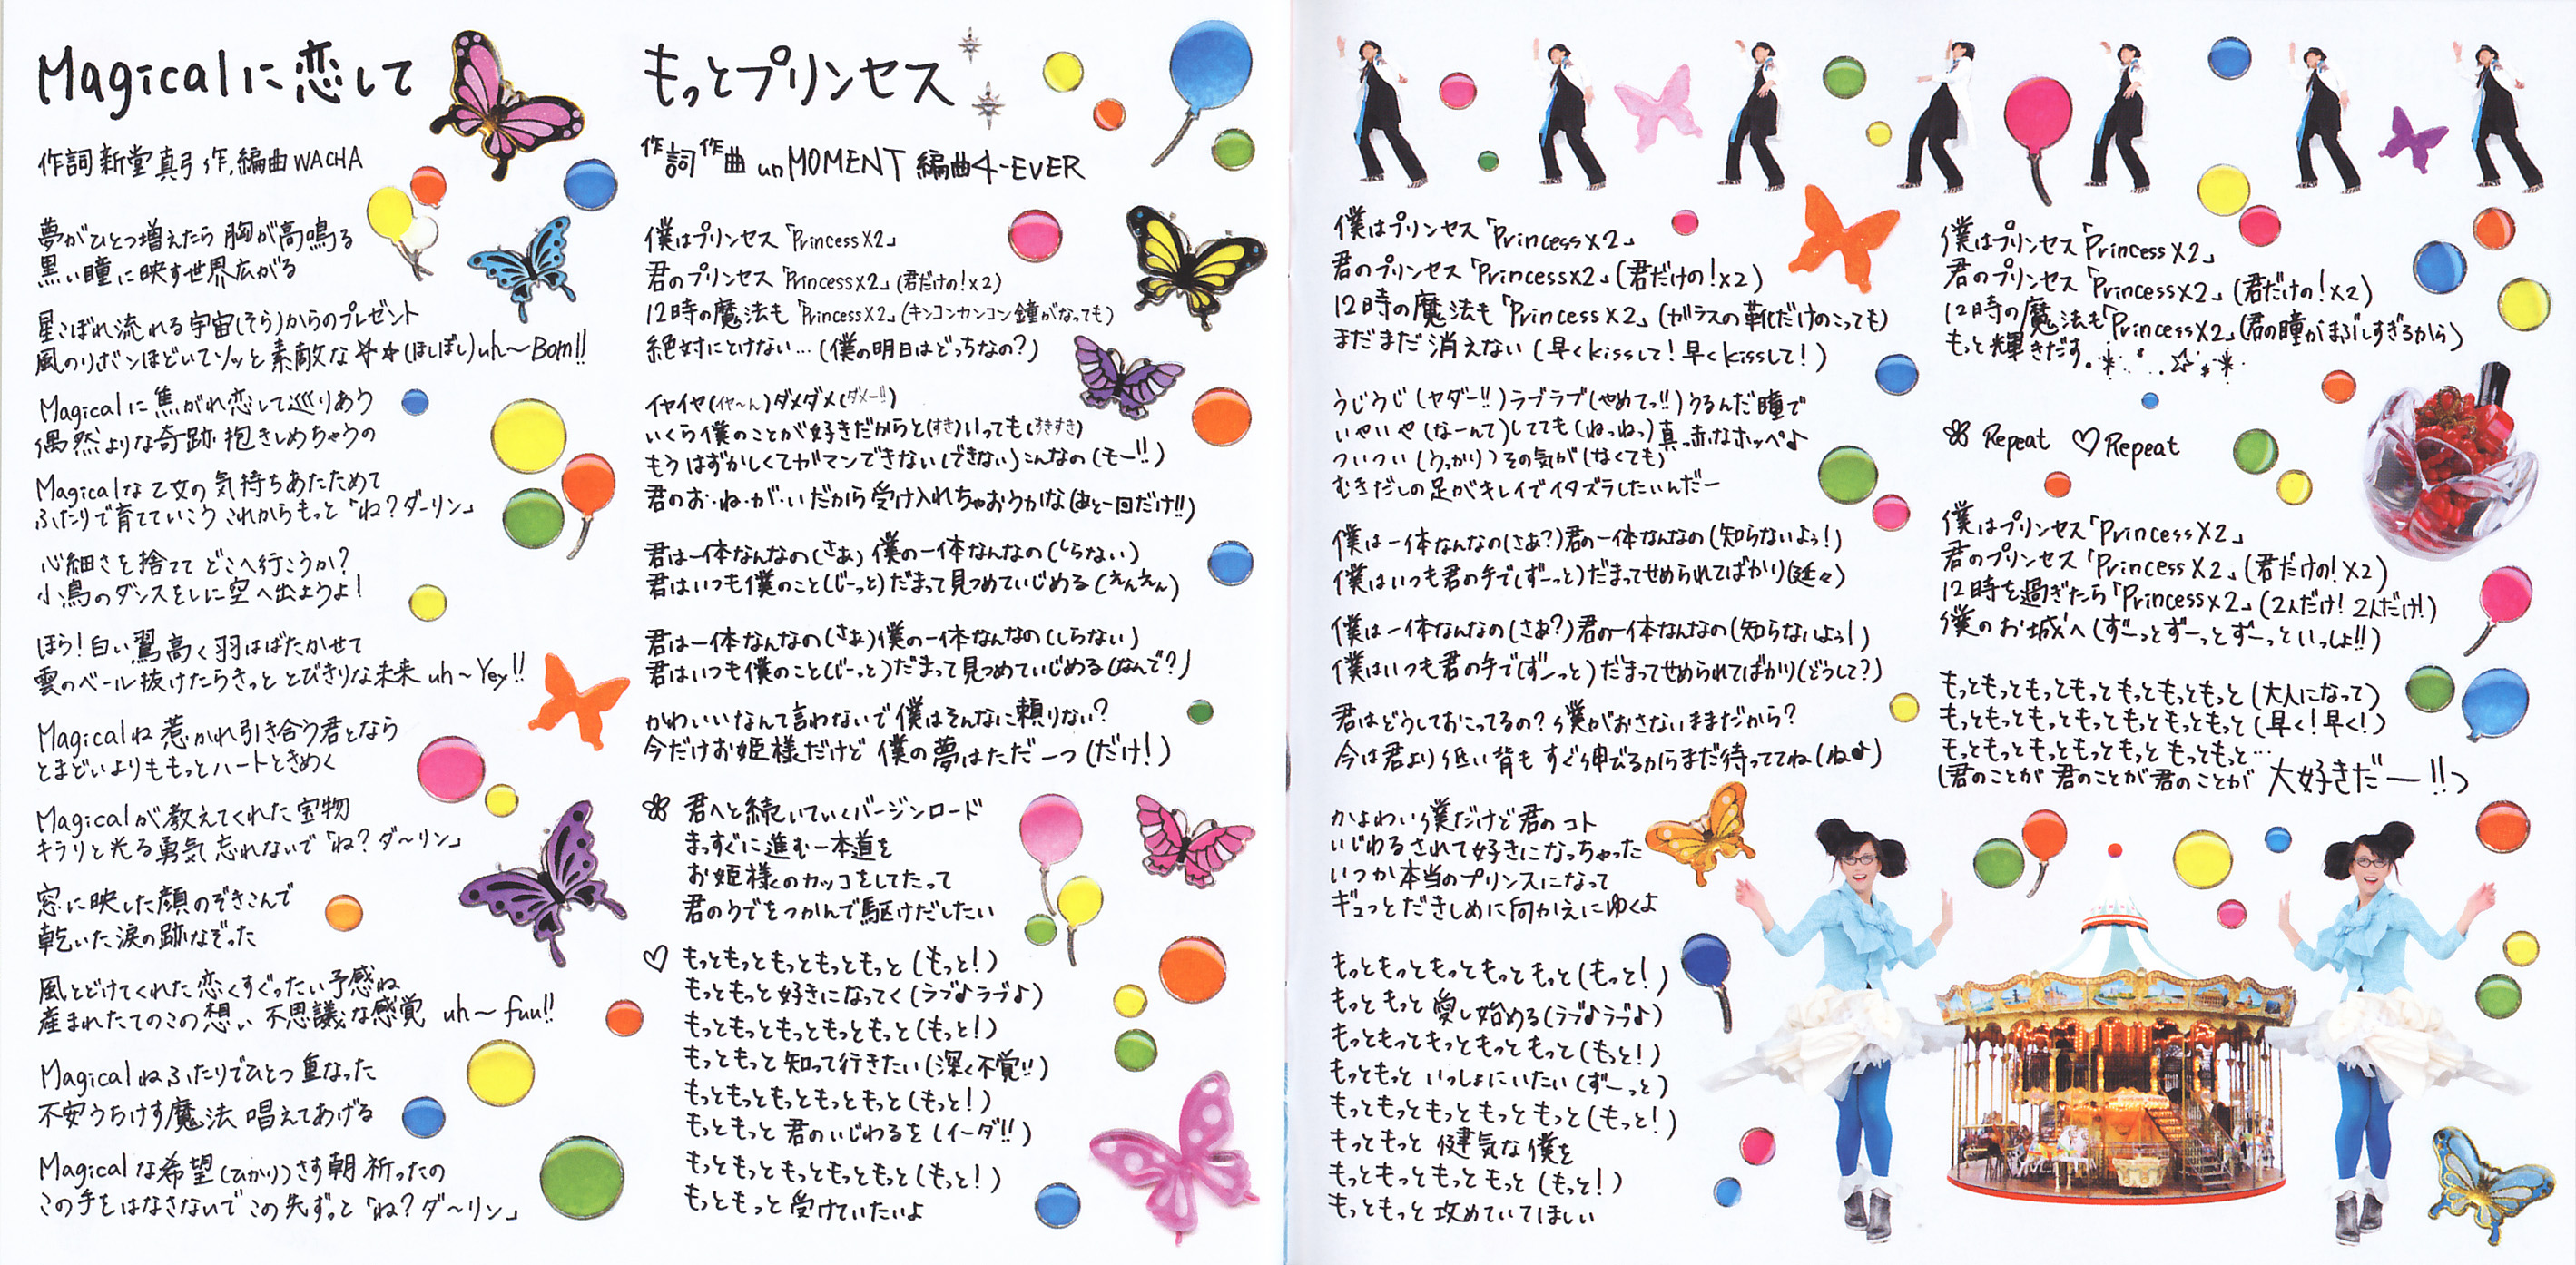 Magicalに恋して
作詞 新堂真弓 作,編曲 WACHA
夢がひとつ増えたら 胸が高鳴る
黒い瞳に映す世界広がる
星こぼれ流れる宇宙(そら)からのプレゼント
風のリボンほどいてソッと素敵な☆★(ほしぼし)uh〜Bom!!
Magicalに焦がれ恋して巡りあう
偶然よりな奇跡 抱きしめちゃうの
Magicalな乙女の気持ちあたためて
ふたりで育てていこう これからもっと「ね?ダーリン」
心細さを捨てて どこへ行こうか?
小鳥のダンスをしに空へ出ようよ!
ほら!白い翼高く羽はばたかせて
雲のベール抜けたらきっと とびきりな未来 uh〜Yey!!
Magicalね 惹かれ引き合う君となら
とまどいよりももっとハートときめく
Magicalが教えてくれた宝物
キラリと光る勇気 忘れないで「ね?ダ〜リン」
窓に映した顔のぞきこんで
乾いた涙の跡なぞった
風とどけてくれた恋くすぐったい予感ね
産まれたてのこの想い 不思議な感覚 uh〜fuu!!
Magicalね ふたりでひとつ 重なった
不安うちけす魔法 唱えてあげる
Magicalな希望(ひかり)さす朝 祈ったの
この手をはなさないで この先ずっと「ね?ダ〜リン」
もっとプリンセス
作詞作曲 unMOMENT 編曲 4-EVER
僕はプリンセス「Princess×2」
君のプリンセス「Princess×2」(君だけの!×2)
12時の魔法も「Princess×2」(キンコンカンコン鐘がなっても)
絶対にとけない…(僕の明日はどっちなの?)
イヤイヤ(イヤ〜ん)ダメダメ(ダメー!!)
いくら僕のことが好きだからと(すき)いっても(すきすき)
もうはずかしくてガマンできない(できない)こんなの(モー!!)
君のお・ね・が・いだから受け入れちゃおうかな(あと一回だけ!!)
君は一体なんなの(さぁ)僕の一体なんなの(しらない)
君はいつも僕のこと(じーっと)だまって見つめていじめる(えんえん)
君は一体なんなの(さぁ)僕の一体なんなの(しらない)
君はいつも僕のこと(じーっと)だまって見つめていじめる(なんで?)
かわいいなんて言わないで 僕はそんなに頼りない?
今だけお姫様だけど 僕の夢はただ一つ(だけ!)
君へと続いていくバージンロード
まっすぐに進む一本道を
お姫様のカッコをしてたって
君のうでをつかんで駆けだしたい
♡ もっともっともっともっともっと(もっと!)
もっともっと好きになってく(ラブ♪ラブ♪)
もっともっともっともっともっと(もっと!)
もっともっと 知って行きたい(深く不覚!!)
もっともっともっともっともっと(もっと!)
もっともっと 君のいじわるを(イーダ!!)
もっともっと もっともっともっと(もっと!)
もっともっと 受けていたいよ
僕はプリンセス「Princess×2」
君のプリンセス「Princess×2」(君だけの!×2)
12時の魔法も「Princess×2」(ガラスの靴だけのこっても)
まだまだ消えない(早くkissして!早くkissして!)
うじうじ(ヤダー!!)ラブラブ(やめてっ!!)うるんだ瞳で
いやいや(なーんて)してても(ねっねっ)真っ赤なホッペ♪
ついつい(うっかり)その気が(なくても)
むきだしの足がキレイでイタズラしたいんだー
僕は一体なんなの(さあ?)君の一体なんなの(知らないよぅ!)
僕はいつも君の手で(ずーっと)だまってせめられてばかり(延々)
僕は一体なんなの(さあ?)君の一体なんなの(知らないよぅ!)
僕はいつも君の手で(ずーっと)だまってせめられてばかり(どうして?)
君はどうしておこってるの?僕がおさないままだから?
今は君より低い背も すぐ伸びるからまだ待っててね(ね♪)
かよわい僕だけど君のコト
いじわるされて好きになっちゃった
いつか本当のプリンスになって
ギュっとだきしめに向かえにゆくよ
もっともっともっともっともっと(もっと!)
もっともっと 愛し始める(ラブ♪ラブ♪)
もっともっともっともっともっと(もっと!)
もっともっと いっしょにいたい(ずーっと)
もっともっともっともっともっと(もっと!)
もっともっと 健気な僕を
もっともっともっともっともっと(もっと!)
もっともっと 攻めていてほしい
僕はプリンセス「Princess×2」
君のプリンセス「Princess×2」(君だけの!×2)
12時の魔法も「Princess×2」(君の瞳がまぶしすぎるから)
もっと輝きだす。
Repeat ♡Repeat
僕はプリンセス「Princess×2」
君のプリンセス「Princess×2」(君だけの!×2)
12時を過ぎたら「Princess×2」(2人だけ!2人だけ!)
僕のお城へ(ずーっとずーっとずーっといっしょ!!)
もっともっともっともっともっともっともっと(大人になって)
もっともっともっともっともっともっともっと(早く!早く!)
もっともっともっともっともっと もっともっと…
(君のことが 君のことが君のことが 大好きだー!!)